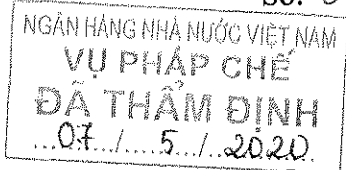 NGÂN HÀNG NHÀ NƯỚC VIỆT NAM
VỤ PHÁP CHẾ
ĐÃ THẨM ĐỊNH
...07.../.....5.../..2020..